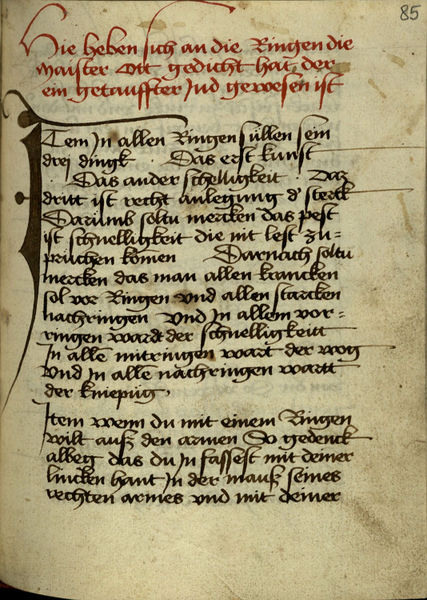 85
Hie heben sich an die Ringen die
maister Ott gedicht hat der
ein getauffter Jud gewesen ist
Item In allen Ringen süllen sein
drej dingk . Das erst kunst
. Das ander schelligkeit . Daz
dritt ist recht anlegung d' sterck
Darumb soltu mercken das pest
ist schnelligkeit die nit lest zu=
pruchen komen Darnach soltu
mercken das man allen krancken
sol vor Ringen vnd allen starcken
nachringen vnd In allem vor=
ringen wardt der schnelligkeitt
In alle mitringen wart der wog
vnd In alle nachringen wartt
der kniepüg,
Item wenn du mit einem Ringen
wilt auß den armen So gedenck
albeg das du In fassest mit deiner
lincken hant In der mauß seines
rechten armes vnd mit deiner